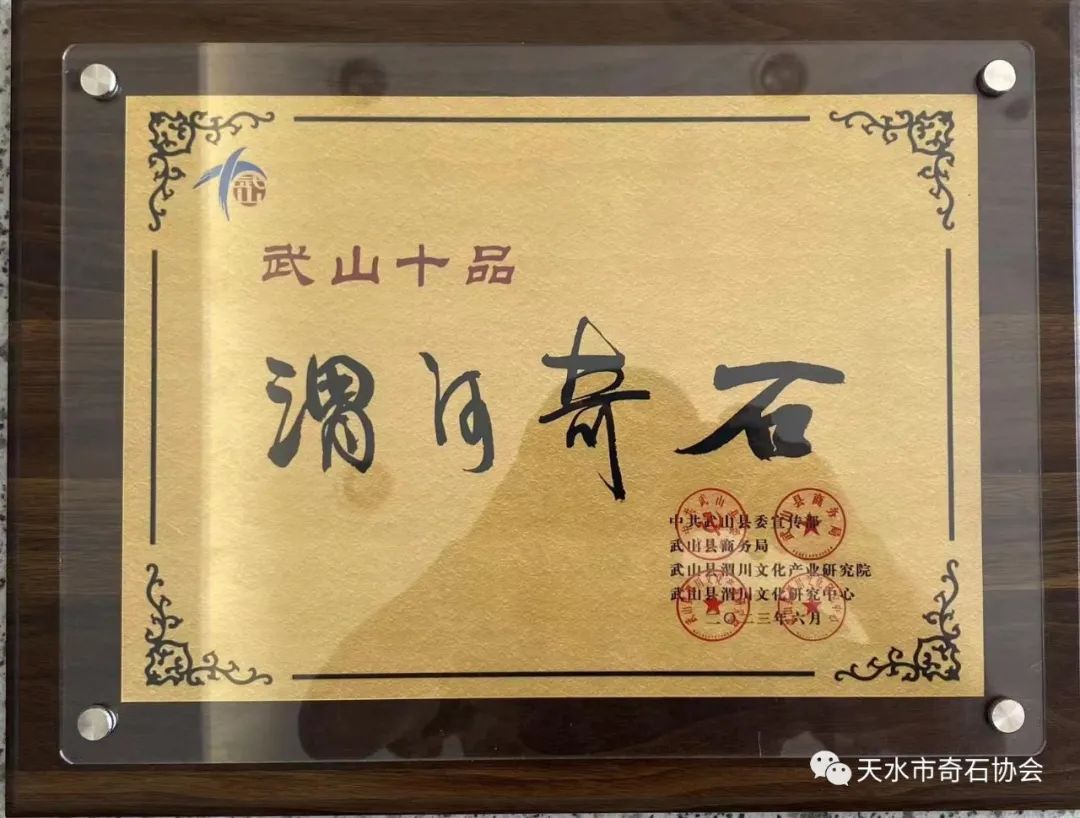 武
武山十品
渭河奇石
中共武山县委宣传部
武山县商务局
武山县渭川文化产业研究院
武山县渭川文化研究中心
二〇二三年六月
武山县商务局
天水市奇石协会